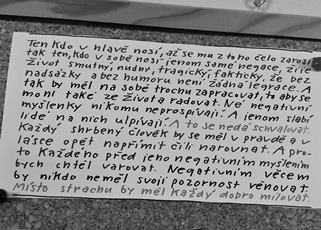 Ten kdo v hlavě nosí, až se mu z toho čelo zarosí
tak ten, kdo v sobě nosí jenom samé negace, žije
život smutný, nudný, tragický, fakticky, že bez
nadsázky a bez humoru není žádná legrace. A
tak by měl na sobě trochu zapracovat, to aby se
mohl také ze života radovat. Ne negativní
myšlenky nikomu neprospívají. A jenom slabí
lidé na nich ulpívají. A to se nedá schvalovat.
Každý shrbený člověk by se měl v pravdě a v
lásce opět napřímit čili narovnat. A pro-
to každého před jeho negativním myšlením
bych chtěl varovat. Negativním věcem
by nikdo neměl svoji pozornost věnovat.
Místo strachu by měl každý dobro milovat.